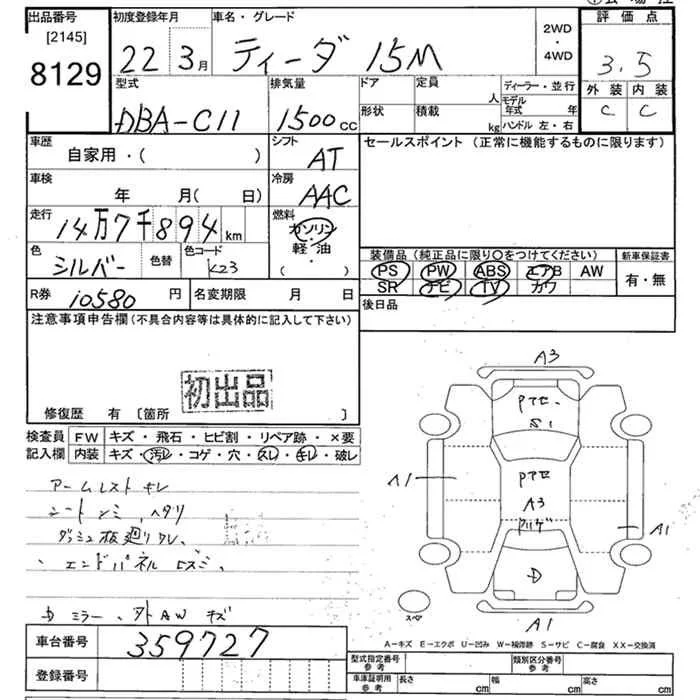 出品番号
[2145]
8129
初度登録年月
22 3月
車名・グレード
ティーダ 15M
2WD
・
4WD
評価点
3.5
外装 内装
C C
型式
DBA-C11
排気量
1500cc
ドア
定員
人
形状
積載
kg
ディーラー・並行
モデル年式 年
ハンドル 左・右
車歴
自家用・( )
シフト
AT
セールスポイント (正常に機能するものに限ります)
車検
年 月(日)
冷房
AAC
走行
14万7千894km
燃料
ガソリン
軽・油
( )
色
シルバー
色替
色コード
K23
装備品 (純正品に限り○をつけてください)
新車保証書
PS PW ABS エアB AW
SR ナビ TV カワ
有・無
R券 10580円
名変期限 月 日
後日品
注意事項申告欄 (不具合内容等は具体的に記入して下さい)
初出品
修復歴 有 [箇所 ]
検査員
記入欄
FW キズ・飛石・ヒビ割・リペア跡・×要
内装 キズ・汚レ・コゲ・穴・スレ・キレ・破レ
アームレスト キレ
シート シミ、ヘタリ
エンドパネル ヒズミ
ミラー、外AW キズ
車台番号 359727
登録番号
A3
Pアセ
S1
A1
Pアセ
A3
A1
D
A1
スペア
A-キズ E-エクボ U-凹み W-補修跡 S-サビ C-腐食 XX-交換済
型式指定番号
参考
類別区分番号
参考
車庫証明用
参考
長さ cm
幅 cm
高さ cm